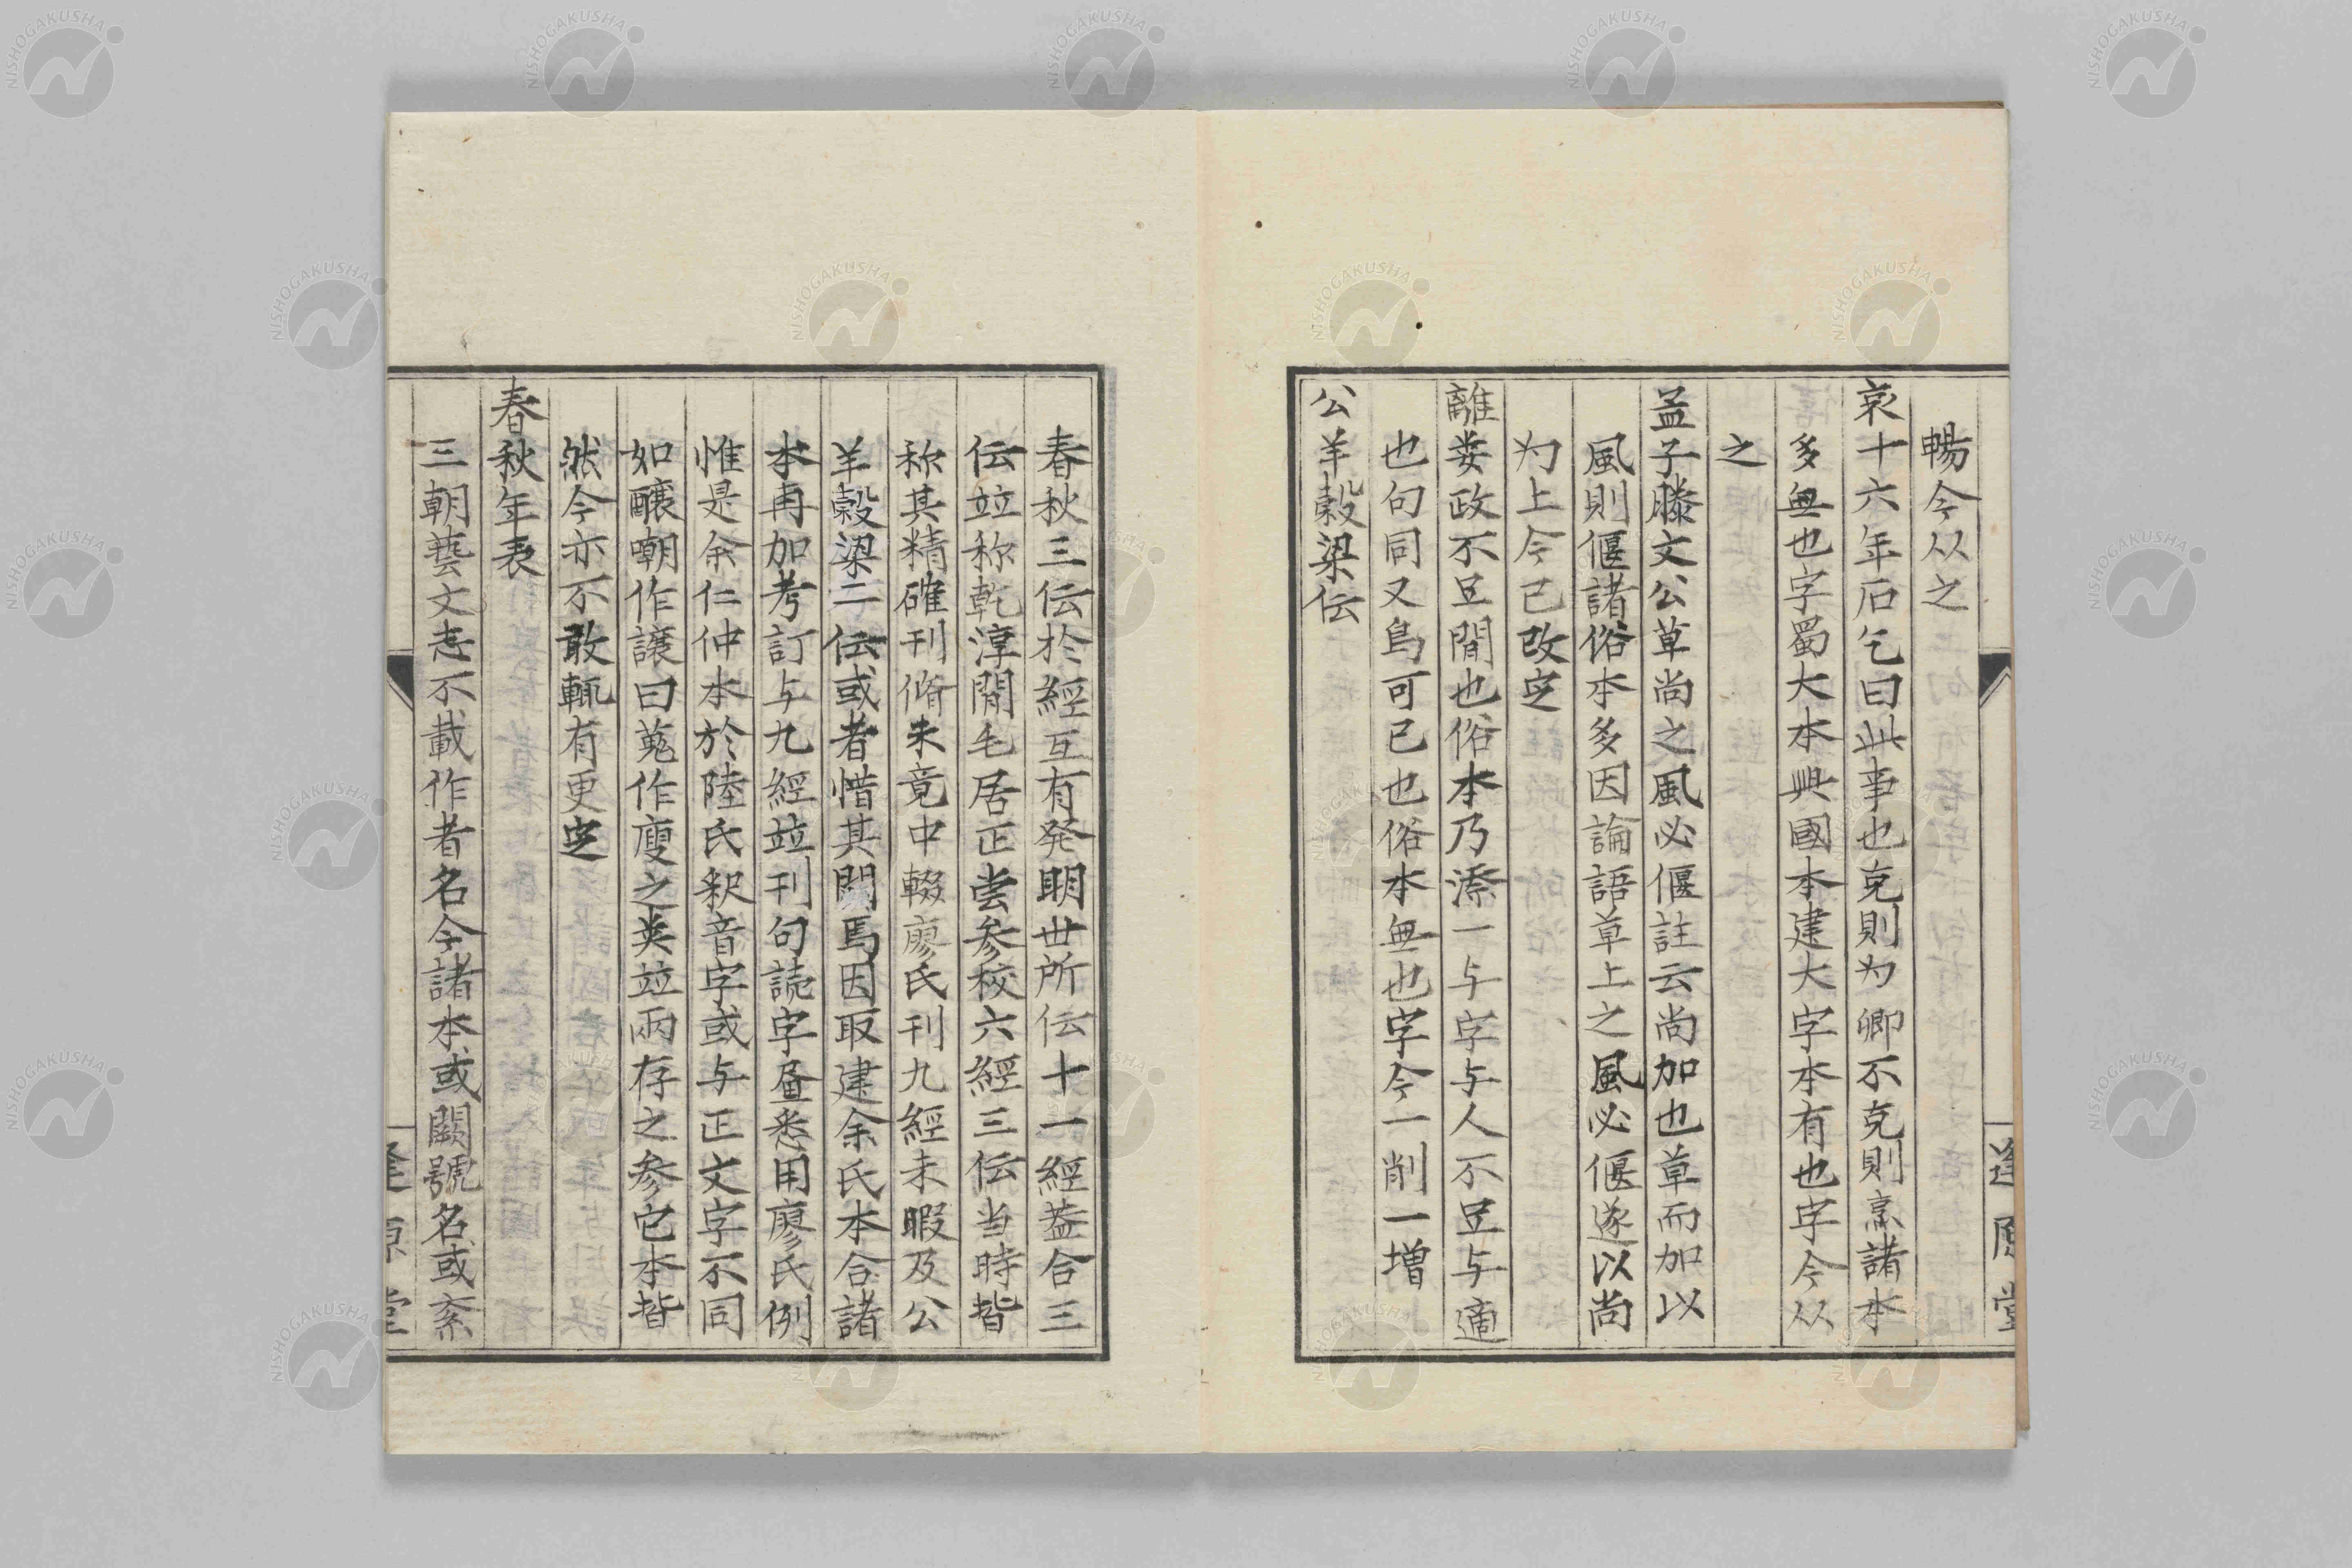 暢今从之
哀十六年石乞曰此事也克則为卿不克則烹諸本
多無也字蜀大本興國本建大字本有也字今从
之
孟子滕文公草尚之風必偃註云尚加也草而加以
風則偃諸俗本多因論語草上之風必偃遂以尚
为上今已改定
離娄政不足間也俗本乃添一与字与人不足与適
也句同又烏可已也俗本無也字今一削一増
公羊糓梁伝
春秋三伝於經互有発明世所伝十一經葢合三
伝竝称乾淳間毛居正甞参校六經三伝当時皆
称其精確刊脩未竟中輟廖氏刊九經未暇及公
羊糓梁二伝或者惜其闕焉因取建余氏本合諸
本再加考訂与九經竝刊句読字畳悉用廖氏例
惟是余仁仲本於陸氏釈音字或与正文字不同
如釀嘲作譲曰蒐作廋之类竝兩存之参它本皆
然今亦不敢輒有更定
春秋年表
三朝藝文志不載作者名今諸本或闕號名或紊
逢原堂